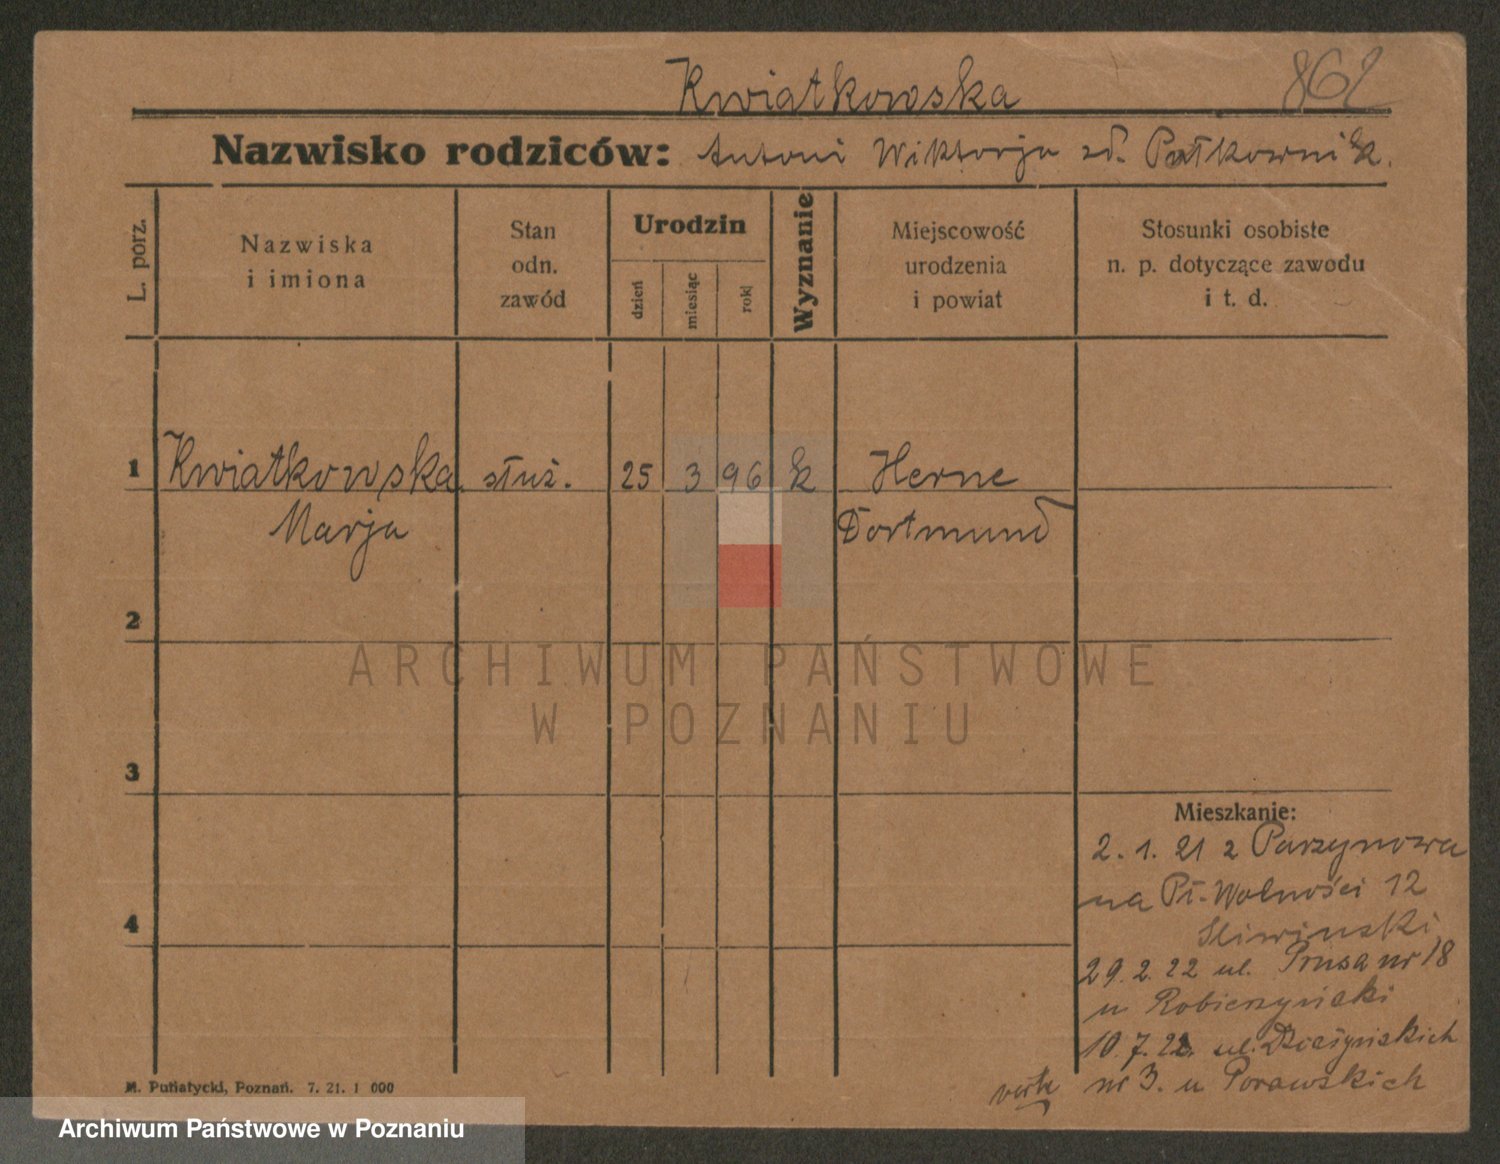 Kwiatkowska
862
Nazwisko rodziców: Antoni Wiktorja zd. Pałkowni k.
L. porz.
Nazwiska
i imiona
Stan
odn.
zawód
Urodzin
dzień
miesiąc
rok
Wyznanie
Miejscowość
urodzenia
i powiat
Stosunki osobiste
n. p. dotyczące zawodu
i t. d.
1 Kwiatkowska służ. 25 3 96 k Herne
Marja Dortmund
2
ARCHIWUM PAŃSTWOWE
W POZNANIU
3
Mieszkanie:
2. 1. 21 z Parzynowa
na Pl. Wolności 12
4
Sliwinski
29. 2. 22 ul. Prusa nr 18
u Robierzyniski
10. 7. 22. ul. Działyńskich
nr 3. u Porawskich
verte
M. Putiatycki, Poznań. 7. 21. 1 000
Archiwum Państwowe w Poznaniu